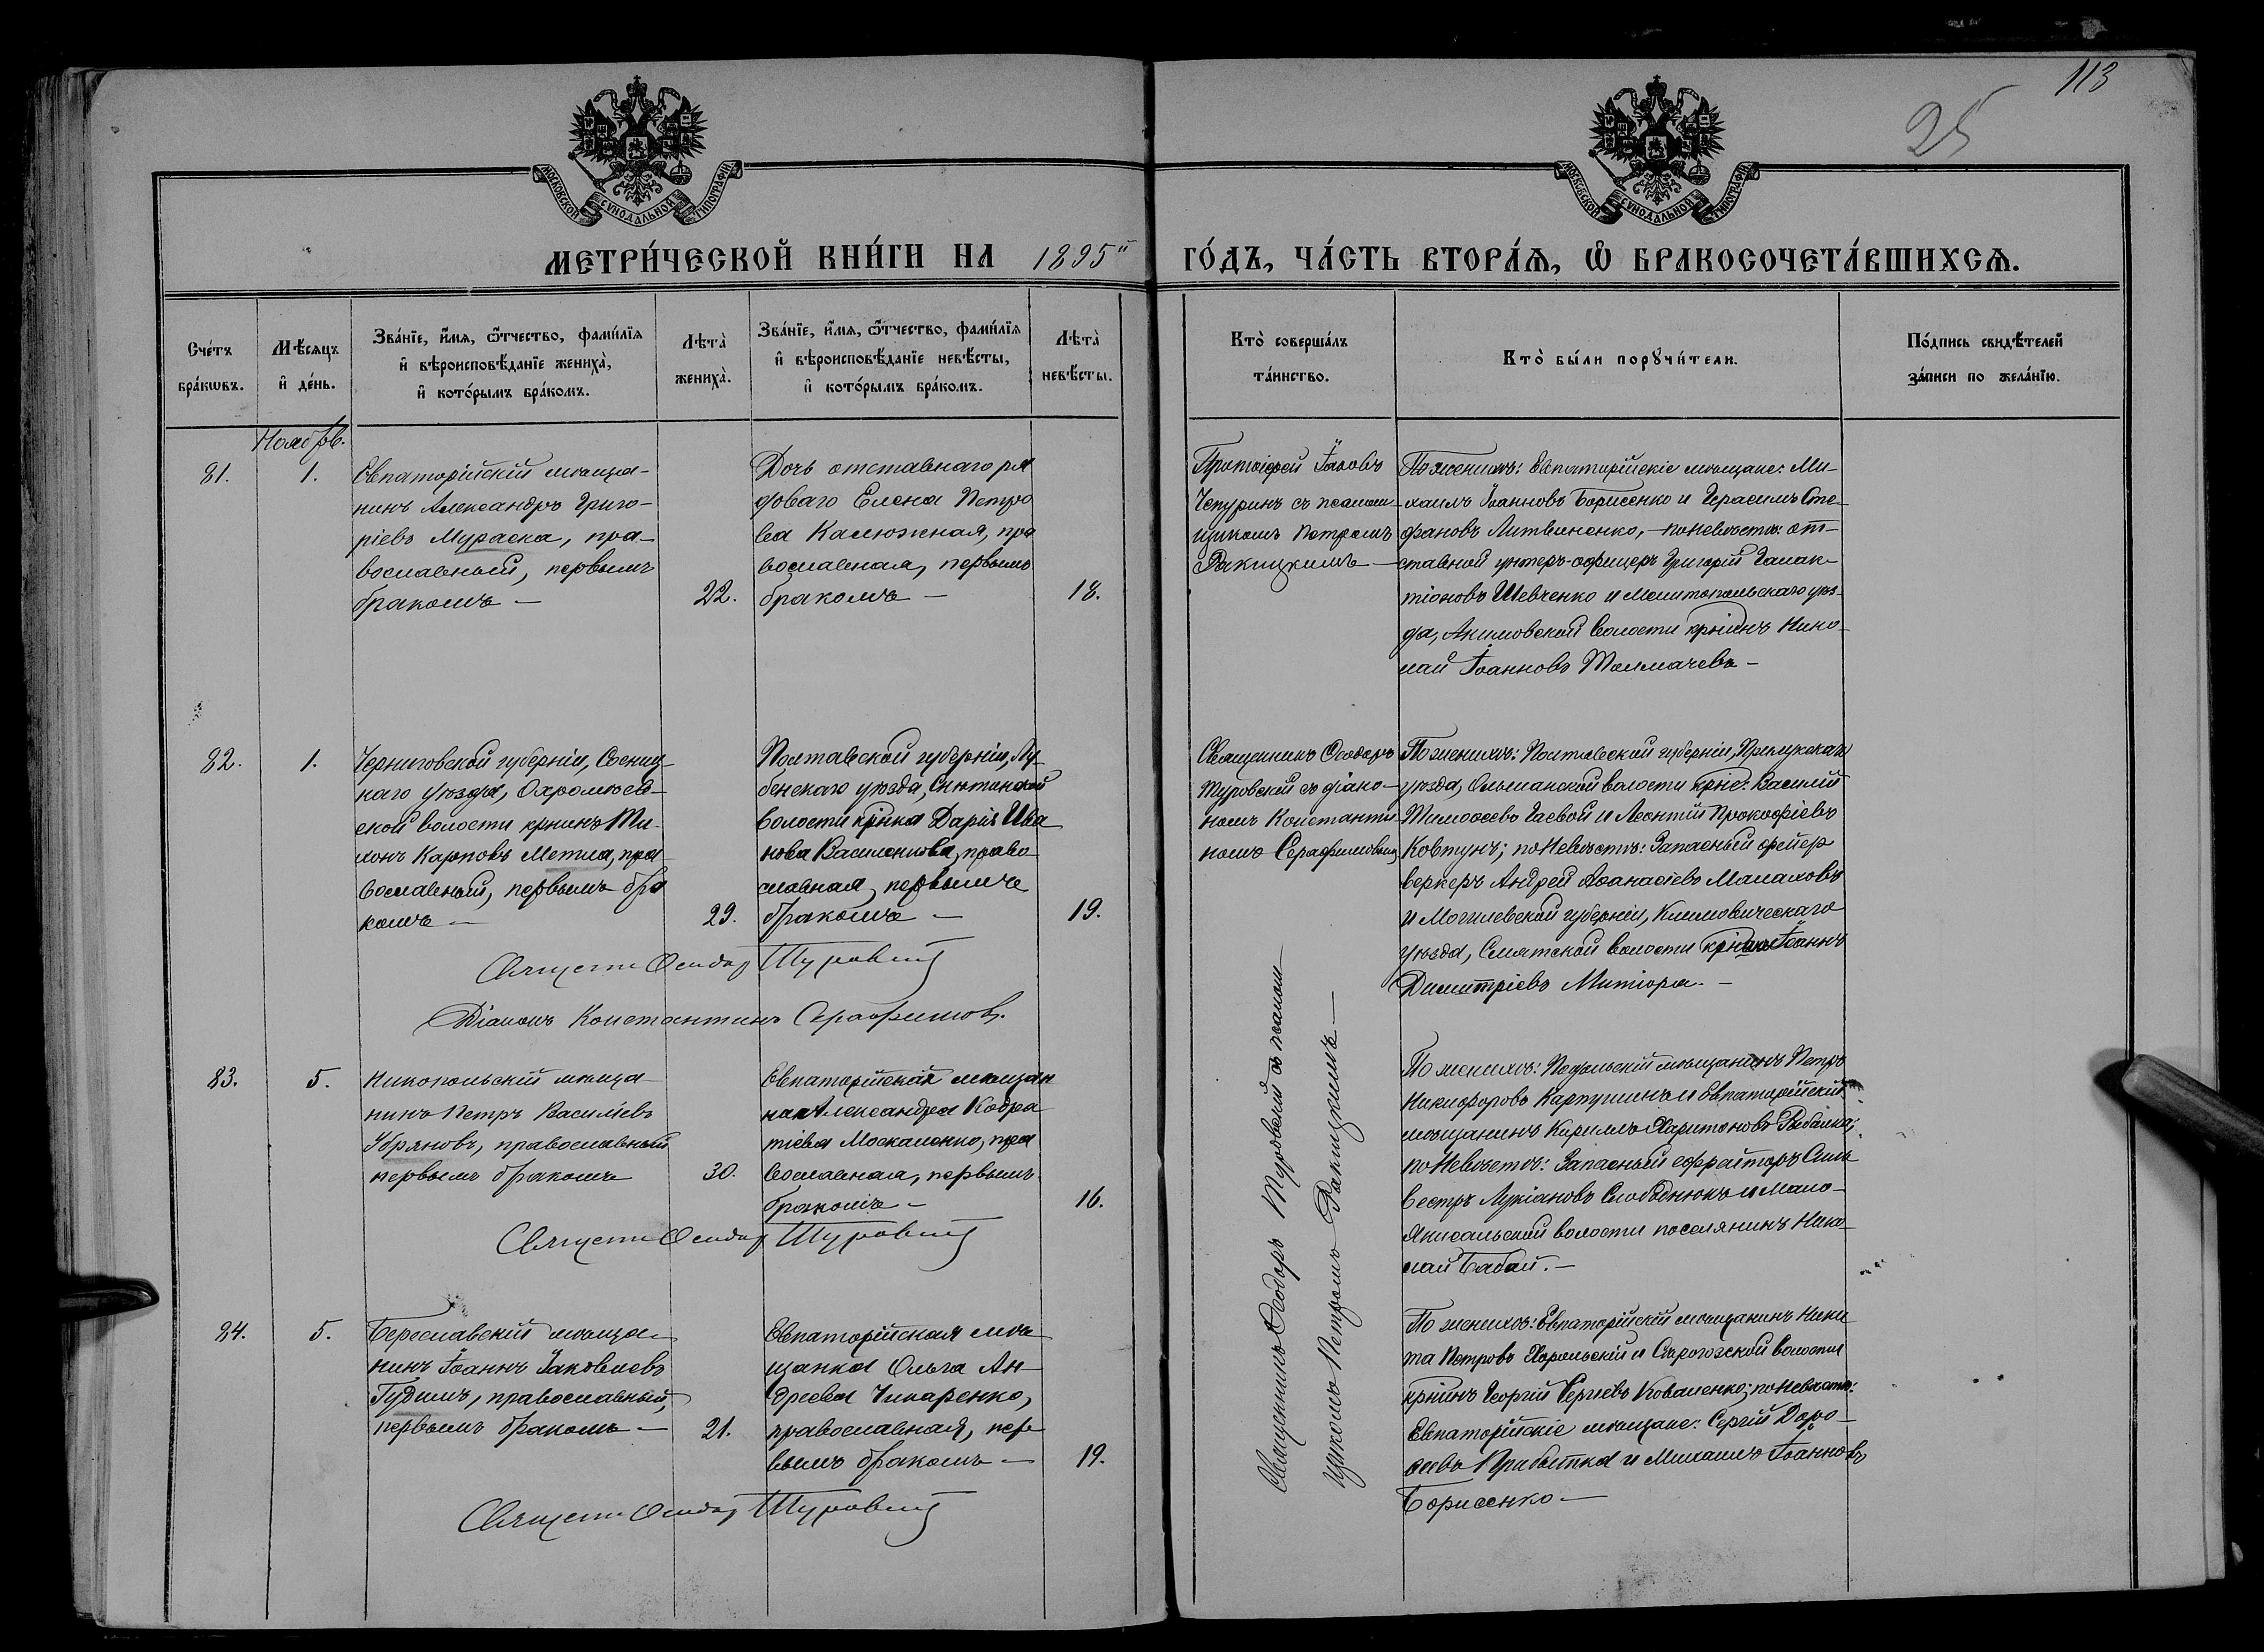 113
25
МОСКОВСКОЙ СѴНОДАЛЬНОЙ ТИПОГРАФІИ
МОСКОВСКОЙ СѴНОДАЛЬНОЙ ТИПОГРАФІИ
МЕТРИ́ЧЕСКОЙ КНИ́ГИ НА 1895й ГО́ДЪ, ЧА́СТЬ ВТОРА́Ѧ, Ѽ БРАКОСОЧЕТА́ВШИХСѦ.
Сче́тъ
бра́кѡвъ.
Мѣ́сѧцъ
и҆ де́нь.
Зва́нїе, и҆́мѧ, ѻ҆́тчество, фами́лїѧ
и҆ вѣроисповѣ́данїе жениха̀,
и҆ кото́рымъ бра́комъ.
Лѣта̀
жениха̀.
Зва́нїе, и҆́мѧ, ѻ҆́тчество, фами́лїѧ
и҆ вѣроисповѣ́данїе невѣ́сты,
и҆ кото́рымъ бра́комъ.
Лѣта̀
невѣ́сты.
Кто̀ соверша́лъ
та́инство.
Кто̀ бы́ли порꙋчи́тели.
По́дпись свидѣ́телей
за́писи по жела́нїю.
Ноябрь.
81.
1.
Евпаторійскій мѣща-
нинъ Александръ Григо-
ріевъ Мураска, пра-
вославный, первымъ
бракомъ —
22.
Дочь отставнаго ря
доваго Елена Петро
ва Калюжная, пра
вославная, первымъ
бракомъ —
18.
Протоіерей Іаковъ
Чепуринъ съ псалом-
щикомъ Петромъ
Ракицкимъ —
По женихѣ: Евпаторійскіе мѣщане: Ми-
хаилъ Іоанновъ Борисенко и Герасимъ Сте-
фановъ Литвиненко, — по невѣстѣ: от-
ставной унтеръ-офицеръ Григорій Галак-
тіоновъ Шевченко и Мелитопольскаго уѣз-
да, Акимовской волости крнинъ Нико-
лай Іоанновъ Толмачевъ —
82.
1.
Черниговской губерніи, Сосниц-
каго уѣзда, Охромѣев-
ской волости крнинъ Ти-
хонъ Карповъ Метла, пра-
вославный, первымъ бра
комъ —
29.
Полтавской губерніи, Лу-
бенскаго уѣзда, Снѣтинской
волости крнка Дарія Ива
нова Василенкова, право-
славная, первымъ
бракомъ —
19.
Священникъ Ѳеодоръ
Туровскій съ діако-
номъ Константи-
номъ Серафимовымъ
По женихѣ: Полтавской губерніи, Прилукскаго
уѣзда, Ольшанской волости крне: Василій
Тимоѳеевъ Гаевой и Леонтій Прокофіевъ
Ковтунъ; по невѣстѣ: Запасный фейер
веркеръ Андрей Аѳанасіевъ Малаховъ
и Могилевской губерніи, Климовическаго
уѣзда, волости крнинъ Іоаннъ
Димитріевъ Митюра. —
Священн Ѳеодор Туровскій
Діаконъ Константинъ Серафимовъ.
83.
5.
Никопольскій мѣща-
нинъ Петръ Василіевъ
православный
первымъ бракомъ
30.
Евпаторійская мѣщан
ка Александра Кодра
тіева Москаленко, пра
вославная, первымъ
бракомъ —
16.
Священникъ Ѳеодоръ Туровскій съ псалом-
щикомъ Петромъ Ракицкимъ —
По женихѣ: Подольскій мѣщанинъ Петръ
Никифоровъ Карпушинъ и Евпаторійскій
мѣщанинъ Кириллъ Харитоновъ Рыбалка;
по невѣстѣ: Запасный ефрейторъ Силь
вестръ Лукіановъ Слободнюкъ и Мало-
Якисальской волости поселянинъ Нико-
лай Бабай. —
Священн Ѳеодор Туровскій
84.
5.
Береславскій мѣща-
нинъ Іоаннъ Іаковлевъ
Гудимъ, православный,
первымъ бракомъ —
21.
Евпаторійская мѣ-
щанка Ольга Ан-
дреева Чинаренко,
православная, пер-
вымъ бракомъ —
19.
По женихѣ: Евпаторійскій мѣщанинъ Ники
та Петровъ Харольскій и Сырогозской волости
крнинъ Георгій Сергіевъ Коваленко; по невѣстѣ:
Евпаторійскіе мѣщане: Сергій Доро-
ѳеевъ Прибытка и Михаилъ Іоанновъ
Борисенко —
Священн Ѳеодор Туровскій